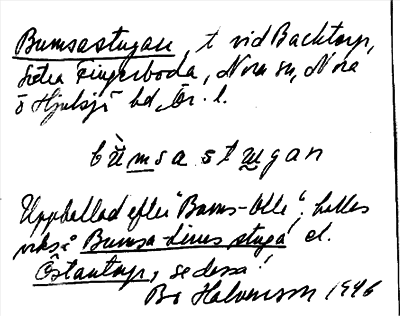 Bumsastugan, t vid Backtorp,
Södra Fingerboda, Nora sn, Nora
o Hjulsjö bd, Ör. l.
bùmsastugan
Uppkallad efter "Bums-Olle". kallas
också Bumsa-Linus stuga el.
Östantorp, se dessa!
Bo Halvorsson 1946